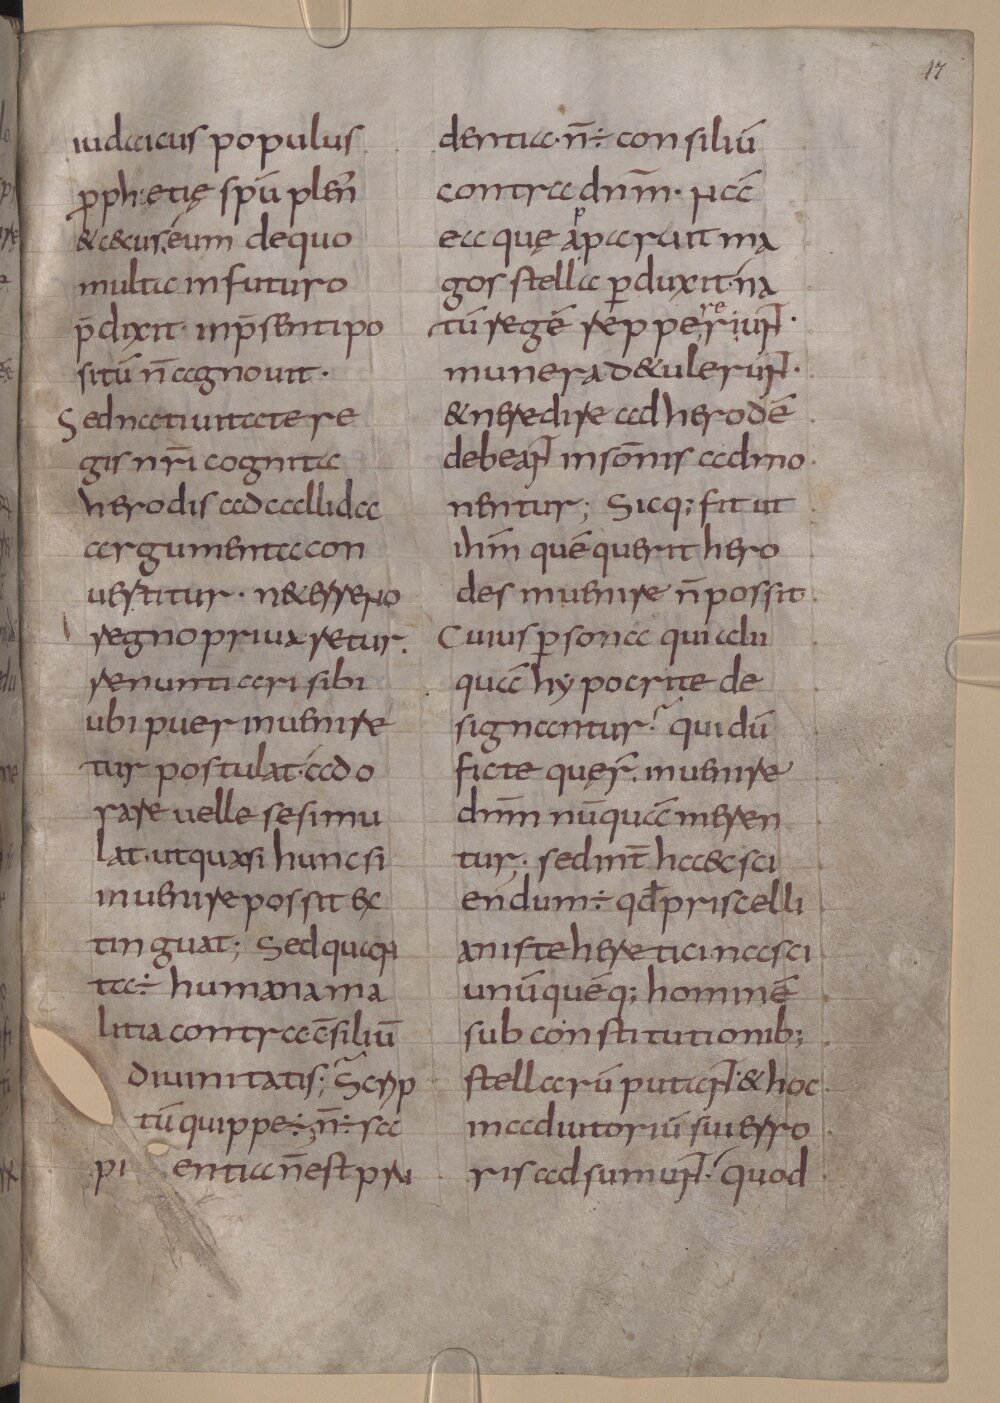 17
iudaicus populus
p̄ph&etię spū plen̄
&c&us, eum dequo
multa infuturo
p̄dixit· inp̄sentipo
sitū n̄ agnouit·
Sed natiuitate re
gis nr̄i cognita
herodis ad callida
argumenta con
uertitur· n&erreno
regno priuaretur.
renuntiari sibi
ubi puer inuenire
tur postulat·ado
rare uelle sesimu
lat·ut quasi hunc si
inuenire possit ex
tinguat; Sed quan
ta÷ humana ma
litia contra c̄siliū
diuinitatis; Scrip
tū quippe÷; n̄÷ sa
pi entia n̄ est pru
dentia· n̄÷ consiliū
contra dn̄m· Nā
ea que apparuit ma
gos stella perduxit·na
tū regē repperer̄unt·
munera d&ulerunt·
& neredire ad herodē
debeant insōnis admo
nentur; Sicq; fit ut
ihm̄ quē querit hero
des inuenire n̄ possit
Cuius psona qui aliī
quā hypocrite de
signantur· qui dū
ficte querr̄. inuenire
dn̄m nūquā meren
tur· sed int̄ ha&c sci
endum÷ qd̄ priscilli
aniste heretici nasci
unūquēq; hominē
sub constitutionib;
stellarū putant·& hoc
in adiutoriū sui erro
ris adsumunt· quod